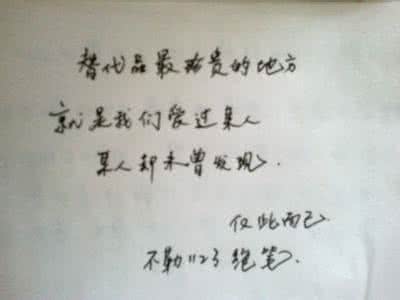 替代品最珍贵的地方
就是我们爱过某人
某人却未曾发现.
仅此而已
不勒1123绝笔.